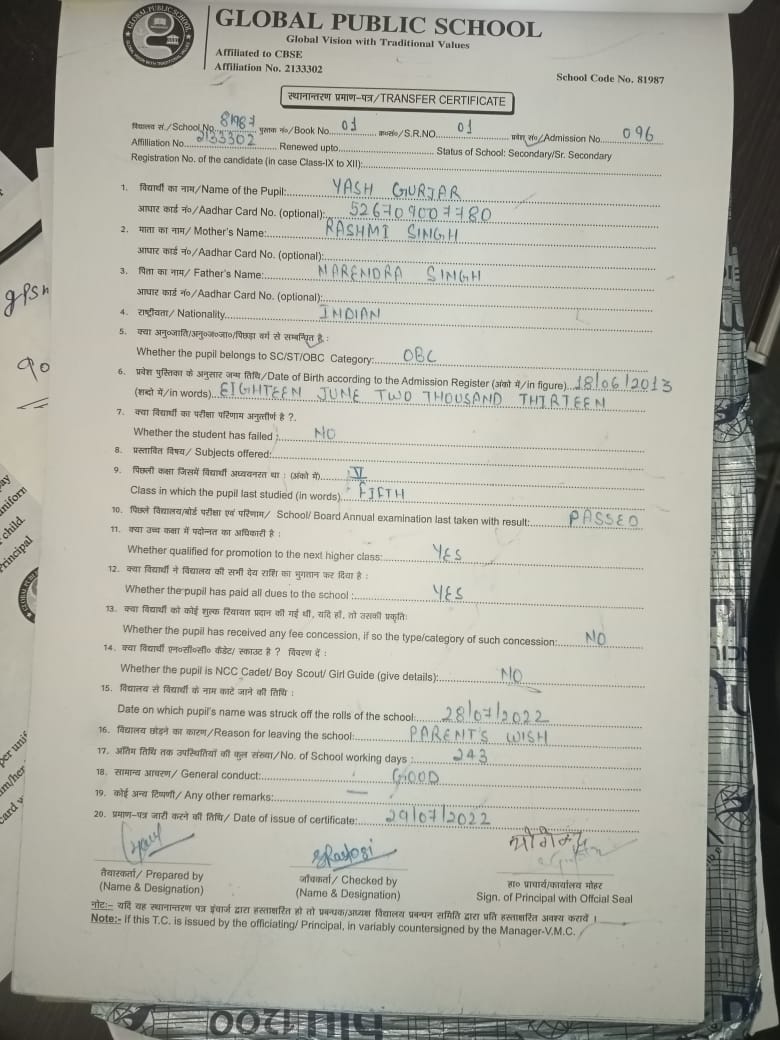 GLOBAL PUBLIC SCHOOL
Global Vision with Traditional Values
Affiliated to CBSE
Affiliation No. 2133302
School Code No. 81987
स्थानान्तरण प्रमाण-पत्र/TRANSFER CERTIFICATE
विद्यालय सं./School No. 81987 पुस्तक नं०/Book No. 01 क्र०सं०/S.R.NO. 01 प्रवेश सं०/Admission No. 096
Affilliation No. 2133302 Renewed upto. Status of School: Secondary/Sr. Secondary
Registration No. of the candidate (in case Class-IX to XII):
1. विद्यार्थी का नाम/Name of the Pupil: YASH GURJAR
आधार कार्ड नं०/Aadhar Card No. (optional): 526709007780
2. माता का नाम/ Mother's Name: RASHMI SINGH
आधार कार्ड नं०/Aadhar Card No. (optional):
3. पिता का नाम/ Father's Name: NARENDRA SINGH
आधार कार्ड नं०/Aadhar Card No. (optional):
4. राष्ट्रीयता/ Nationality. INDIAN
5. क्या अनु०जाति/अनु०ज०जा०/पिछड़ा वर्ग से सम्बन्धित है :
Whether the pupil belongs to SC/ST/OBC Category: OBC
6. प्रवेश पुस्तिका के अनुसार जन्म तिथि/Date of Birth according to the Admission Register (अंको में/in figure). 18/06/2013
(शब्दो में/in words). EIGHTEEN JUNE TWO THOUSAND THIRTEEN
7. क्या विद्यार्थी का परीक्षा परिणाम अनुत्तीर्ण है ?.
Whether the student has failed : NO
8. प्रस्तावित विषय/ Subjects offered:
9. पिछली कक्षा जिसमें विद्यार्थी अध्ययनरत था : (अंको में). V
Class in which the pupil last studied (in words). FIFTH
10. पिछले विद्यालय/बोर्ड परीक्षा एवं परिणाम/ School/ Board Annual examination last taken with result: PASSED
11. क्या उच्च कक्षा में पदोन्नत का अधिकारी है :
Whether qualified for promotion to the next higher class: YES
12. क्या विद्यार्थी ने विद्यालय की सभी देय राशि का भुगतान कर दिया है :
Whether the pupil has paid all dues to the school : YES
13. क्या विद्यार्थी को कोई शुल्क रियायत प्रदान की गई थी, यदि हाँ, तो उसकी प्रकृति:
Whether the pupil has received any fee concession, if so the type/category of such concession: NO
14. क्या विद्यार्थी एन०सी०सी० कैडेट/ स्काउट है ? विवरण दें :
Whether the pupil is NCC Cadet/ Boy Scout/ Girl Guide (give details): NO
15. विद्यालय से विद्यार्थी के नाम काटे जाने की तिथि :
Date on which pupil's name was struck off the rolls of the school: 28/07/2022
16. विद्यालय छोड़ने का कारण/Reason for leaving the school: PARENT'S WISH
17. अंतिम तिथि तक उपस्थितियों की कुल संख्या/No. of School working days : 243
18. सामान्य आचरण/ General conduct: GOOD
19. कोई अन्य टिप्पणी/ Any other remarks: —
20. प्रमाण-पत्र जारी करने की तिथि/ Date of issue of certificate: 29/07/2022
तैयारकर्ता/ Prepared by
(Name & Designation)
जाँचकर्ता/ Checked by
(Name & Designation)
हा० प्राचार्य/कार्यालय मोहर
Sign. of Principal with Offcial Seal
नोट:- यदि यह स्थानान्तरण पत्र इंचार्ज द्वारा हस्ताक्षरित हो तो प्रबन्धक/अध्यक्ष विद्यालय प्रबन्धन समिति द्वारा प्रति हस्ताक्षरित अवश्य करायें ।
Note:- If this T.C. is issued by the officiating/ Principal, in variably countersigned by the Manager-V.M.C.